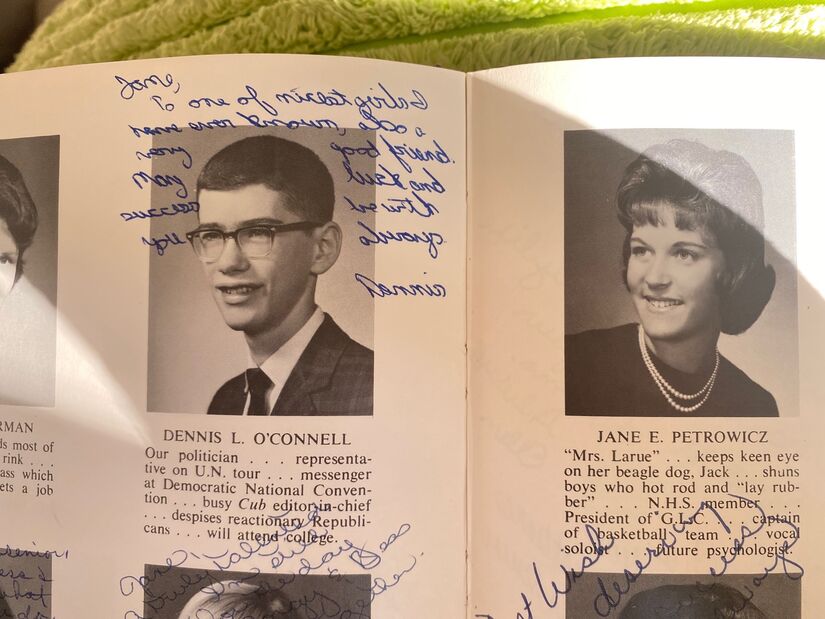 Jane,
To one of nicest girls I
have ever known, also a
very good friend.
Many luck and
success be with
you always
Dennis
DENNIS L. O'CONNELL
Our politician . . . representa-
tive on U.N. tour . . . messenger
at Democratic National Conven-
tion . . . busy Cub editor-in-chief
. . . despises reactionary Republi-
cans . . . will attend college.
RMAN
ds most of
rink . . .
ass which
ets a job
Jane
a truly talented
JANE E. PETROWICZ
"Mrs. Larue" . . . keeps keen eye
on her beagle dog, Jack . . . shuns
boys who hot rod and "lay rub-
ber" . . . N.H.S. member . . .
President of G.L.C. . . . captain
of basketball team . . . vocal
soloist . . . future psychologist.
deserving
success
always